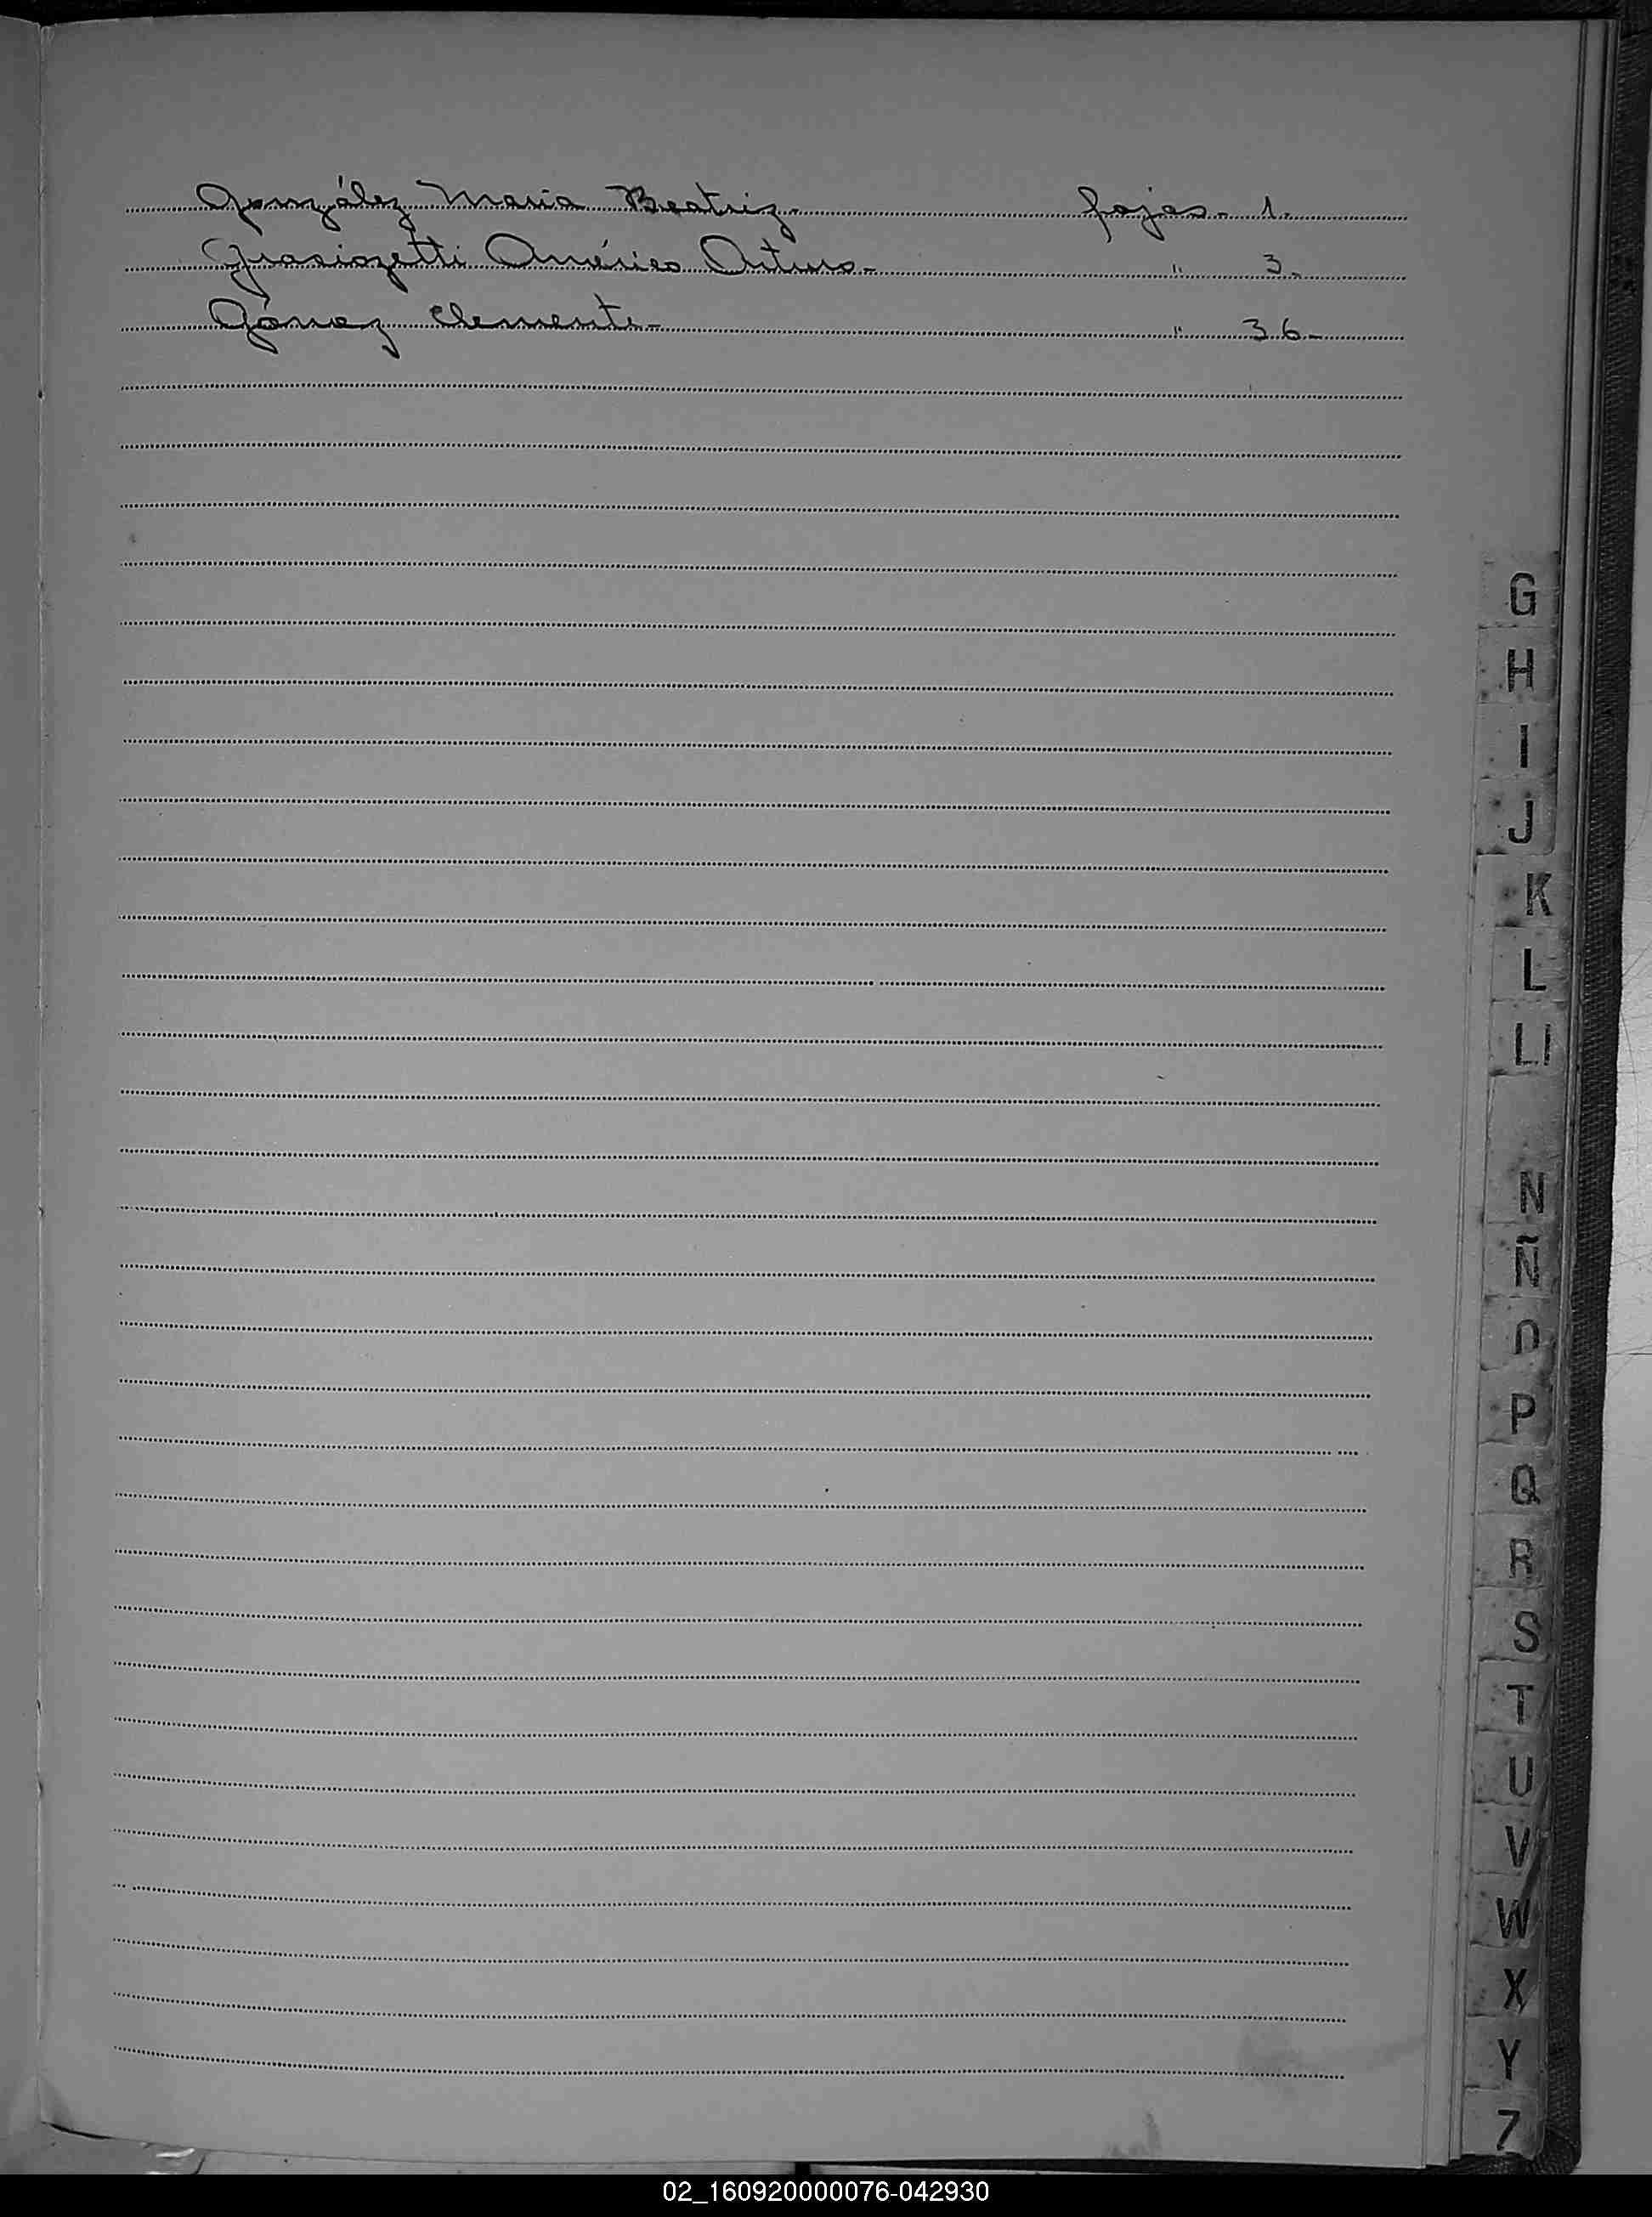 González Maria Beatriz. fojas. 1.
Grasiozetti Américo Arturo. " 3.
Gómez Clemente. " 36.
G
H
I
J
K
L
LL
N
Ñ
O
P
Q
R
S
T
U
V
W
X
Y
Z
02_160920000076-042930